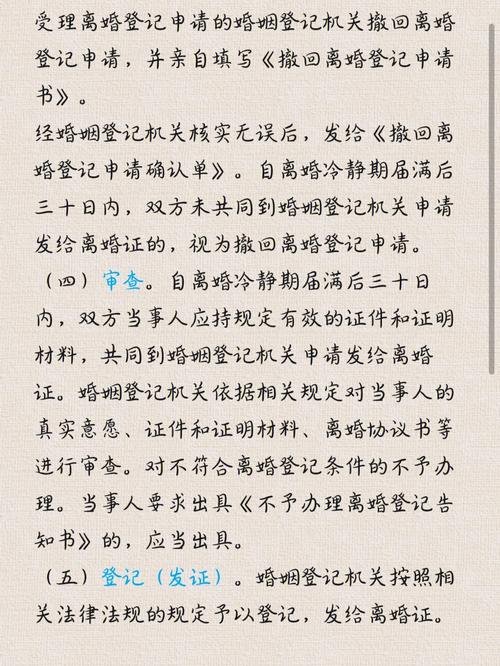 受理离婚登记申请的婚姻登记机关撤回离婚
登记申请，并亲自填写《撤回离婚登记申请
书》。
经婚姻登记机关核实无误后，发给《撤回离
婚登记申请确认单》。自离婚冷静期届满后
三十日内，双方未共同到婚姻登记机关申请
发给离婚证的，视为撤回离婚登记申请。
（四）审查。自离婚冷静期届满后三十日
内，双方当事人应持规定有效的证件和证明
材料，共同到婚姻登记机关申请发给离婚
证。婚姻登记机关依据相关规定对当事人的
真实意愿、证件和证明材料、离婚协议书等
进行审查。对不符合离婚登记条件的不予办
理。当事人要求出具《不予办理离婚登记告
知书》的，应当出具。
（五）登记（发证）。婚姻登记机关按照相
关法律法规的规定予以登记，发给离婚证。